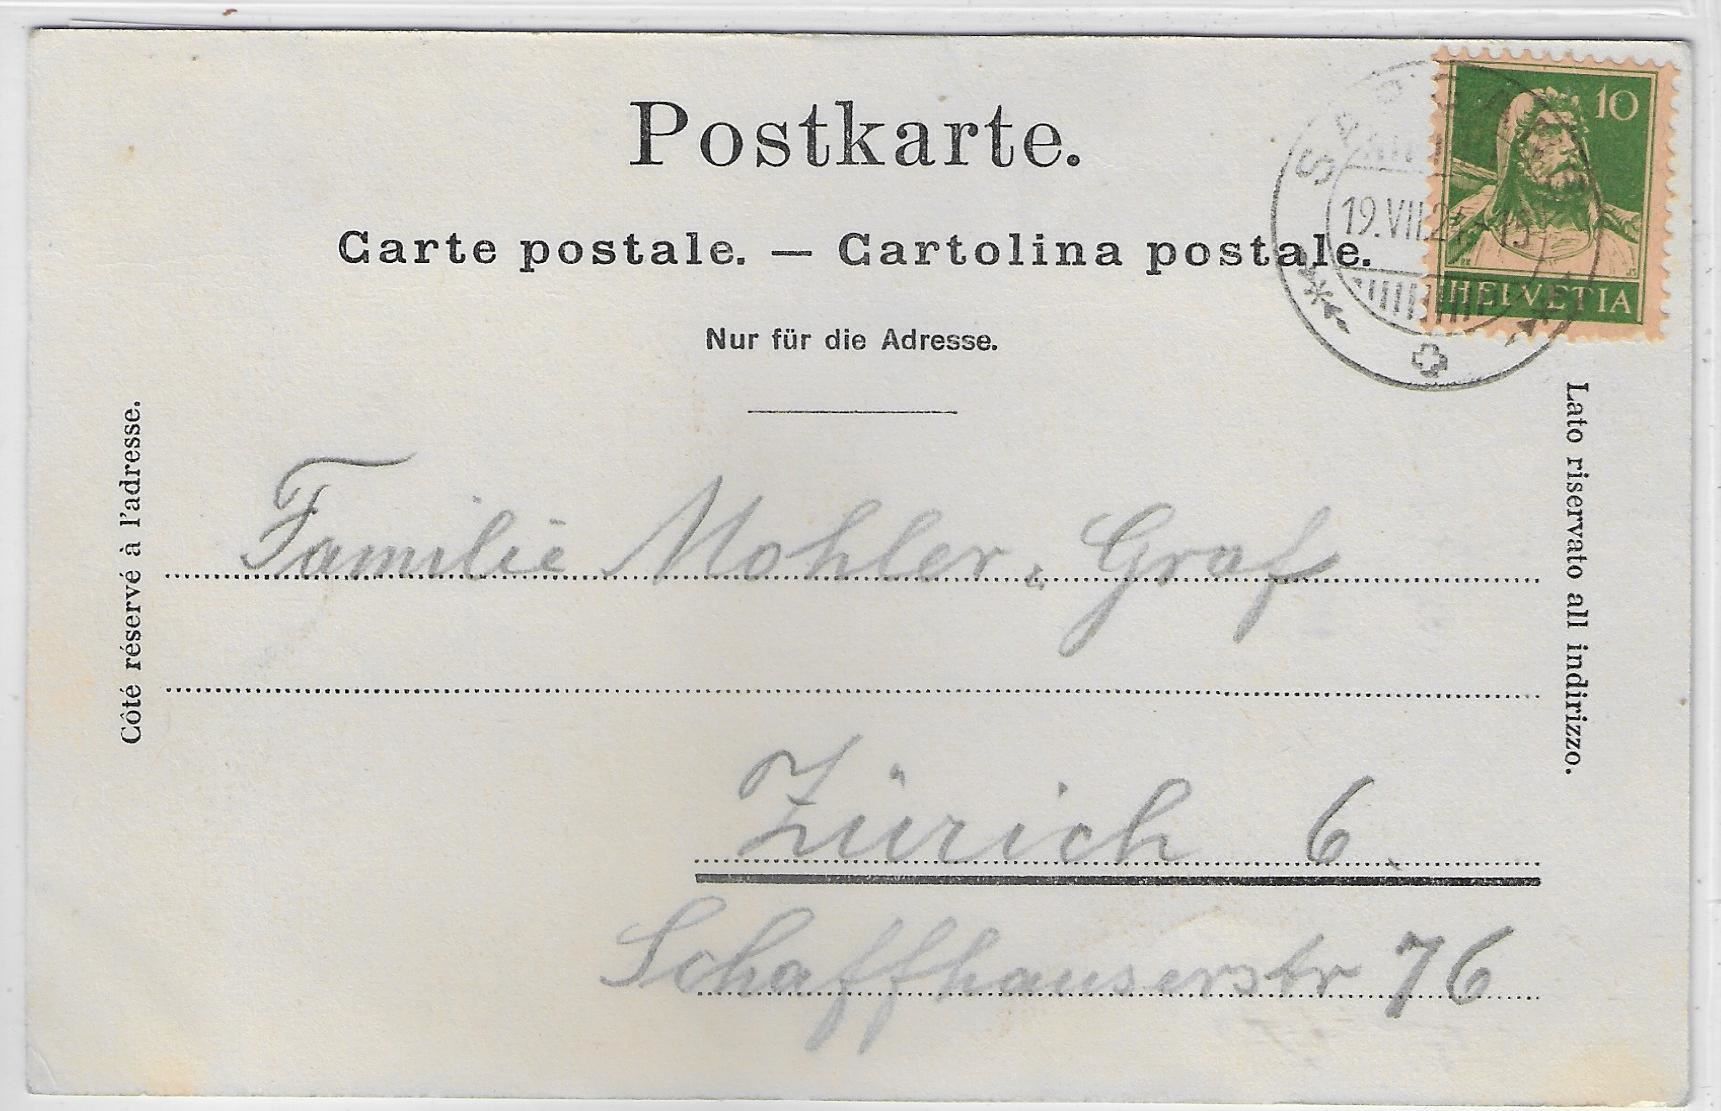 Postkarte.
10
Carte postale. — Cartolina postale.
19.VII.2
HELVETIA
Nur für die Adresse.
Côté réservé à l'adresse.
Lato riservato all indirizzo.
Familie Mohler, Graf
Zürich 6.
Schaffhauserstr 76